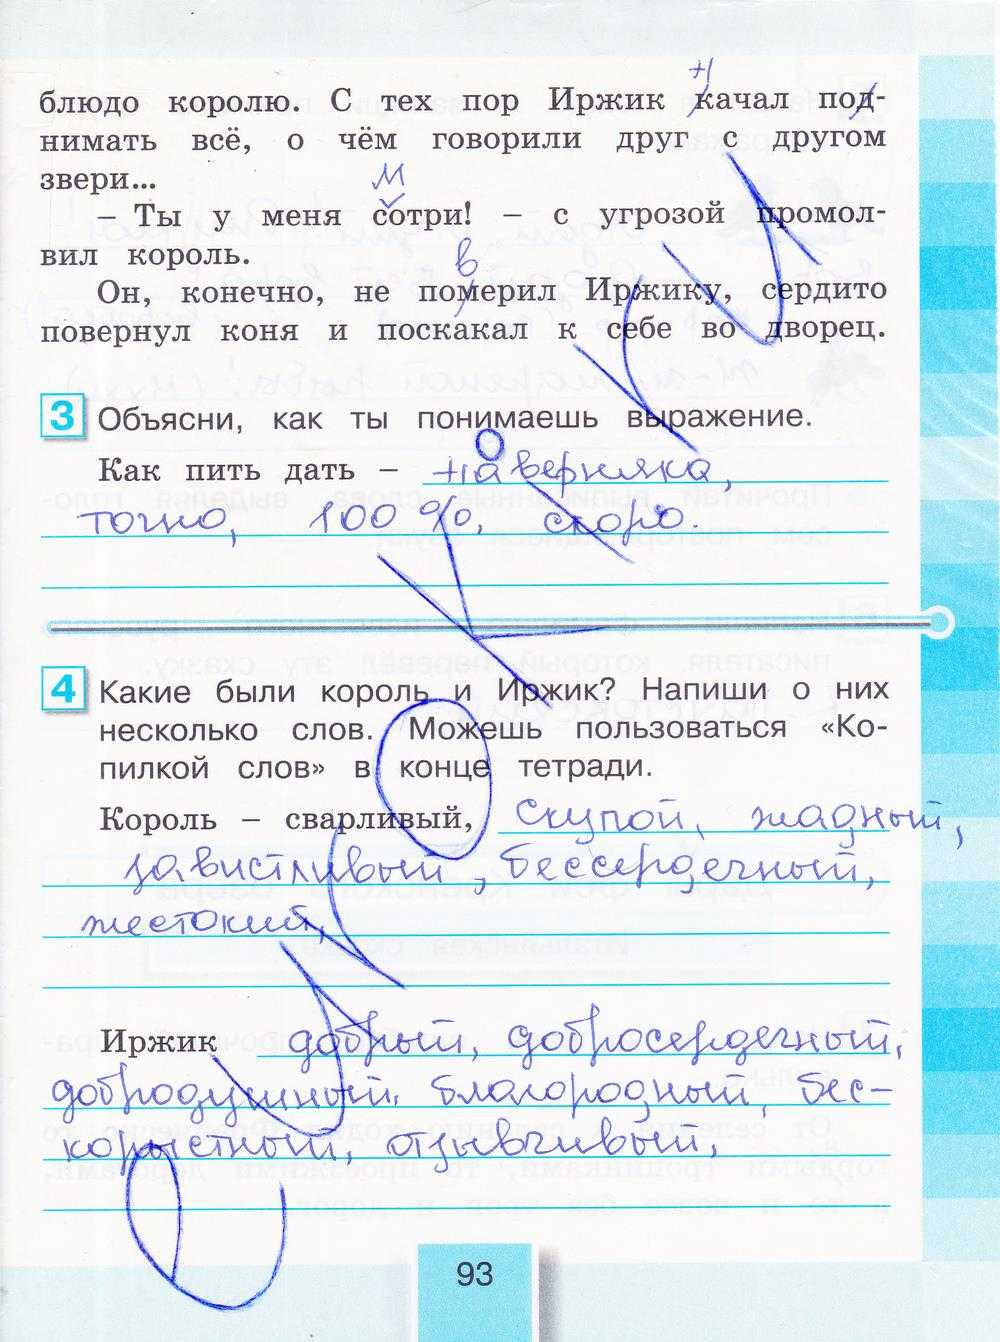 н
блюдо королю. С тех пор Иржик качал под-
нимать всё, о чём говорили друг с другом
звери...
м
– Ты у меня сотри! – с угрозой промол-
вил король.
в
Он, конечно, не померил Иржику, сердито
повернул коня и поскакал к себе во дворец.
3 Объясни, как ты понимаешь выражение.
Как пить дать – наверняка,
точно, 100 %, скоро.
4 Какие были король и Иржик? Напиши о них
несколько слов. Можешь пользоваться «Ко-
пилкой слов» в конце тетради.
Король – сварливый, скупой, жадный,
завистливый, бессердечный,
жестокий,
Иржик добрый, добросердечный,
добродушный, благородный, бес-
корыстный, отзывчивый,
93